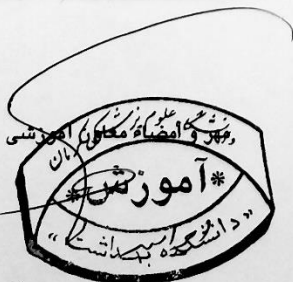 مهر و امضاء معاون آموزشی
*آموزش*
دانشکده بهداشت